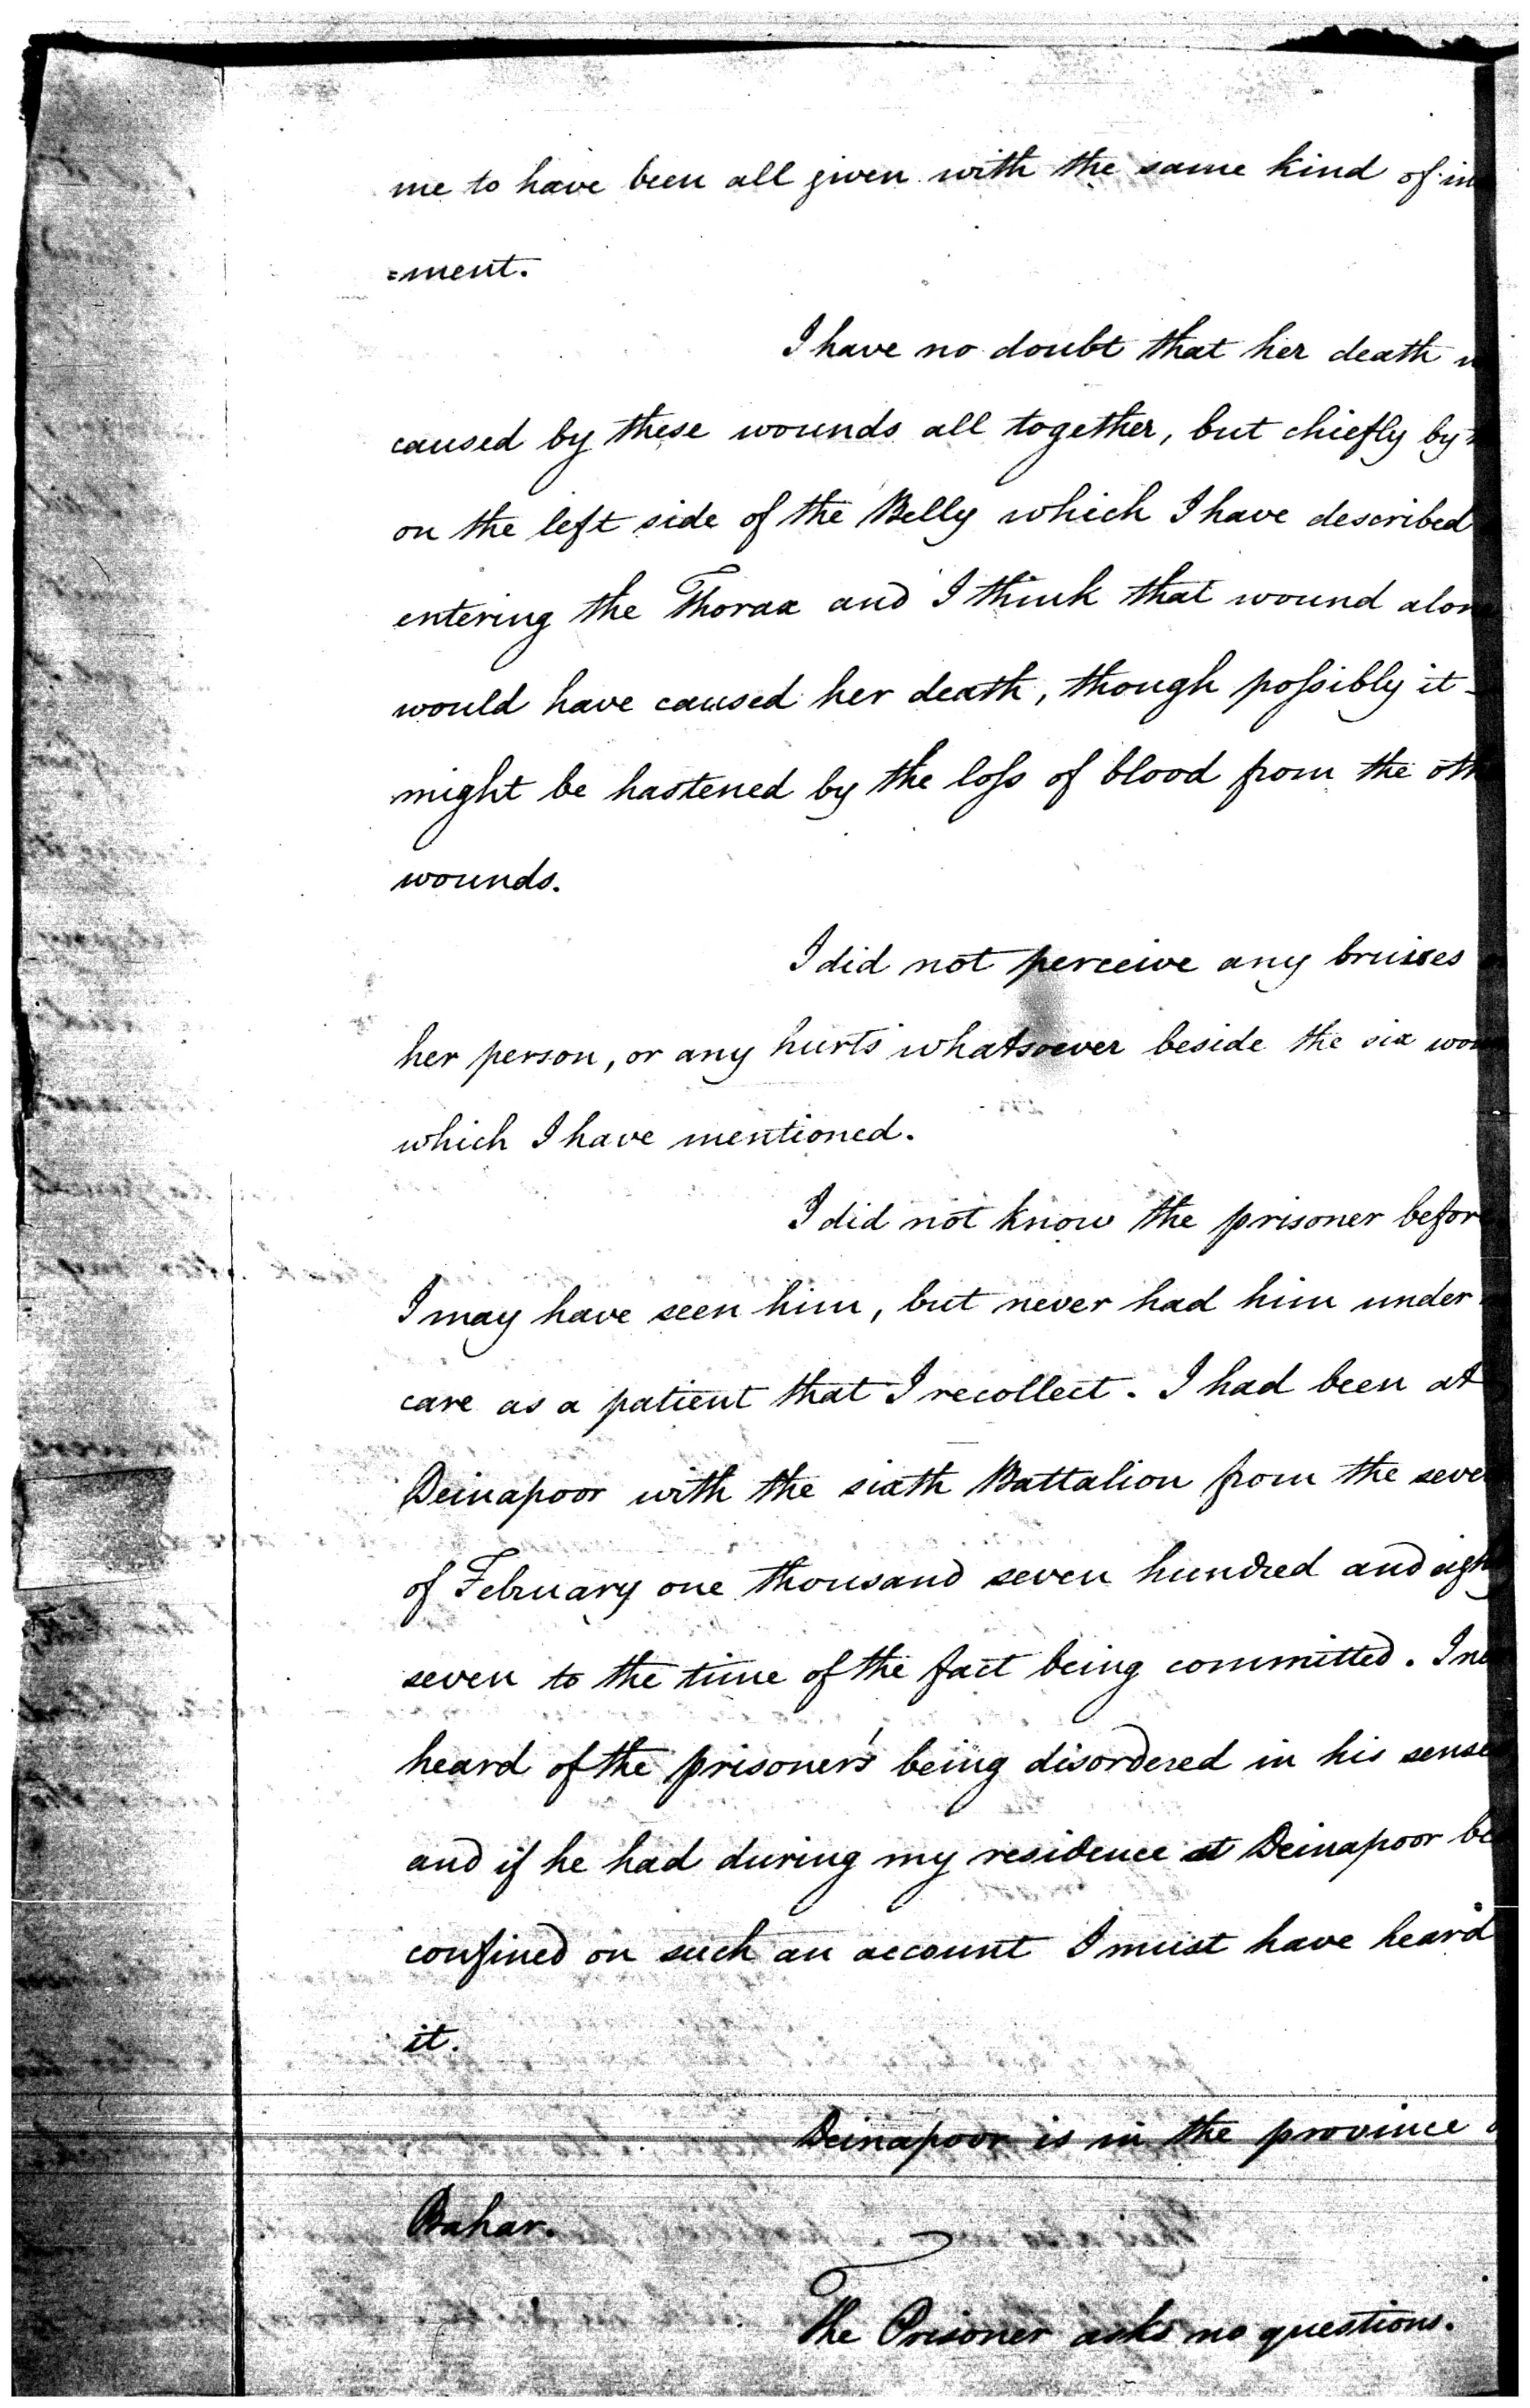 me to have been all given with the same kind of in
=ment.
I have no doubt that her death
caused by these wounds all together, but chiefly by
on the left side of the Belly which I have described
entering the Thorax and I think that wound alone
would have caused her death, though poſsibly it
might be hastened by the loſs of blood from the oth
wounds.
I did not perceive any bruises
her person, or any hurts whatsoever beside the six wou
which I have mentioned.
I did not know the prisoner before
I may have seen him, but never had him under
care as a patient that I recollect. I had been at
Deinapoor with the sixth Battalion from the seve
of February one thousand seven hundred and eigh
seven to the time of the fact being committed. I ne
heard of the prisoner's being disordered in his sense
and if he had during my residence at Deinapoor be
confined on such an account I must have heard
it.
Deinapoor is in the province
Bahar.
The Prisoner asks no questions.